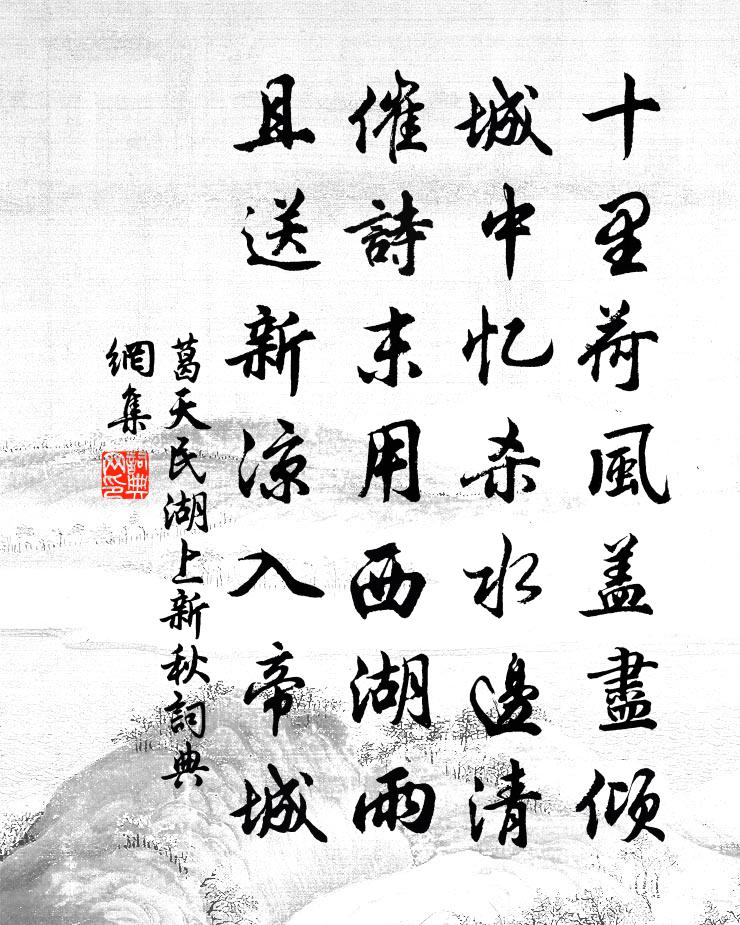 十里荷風盖盡倾
城中忆杀水邊清
催詩未用西湖雨
且送新凉入帝城
葛天民湖上新秋詞典
網集
詞典
网印